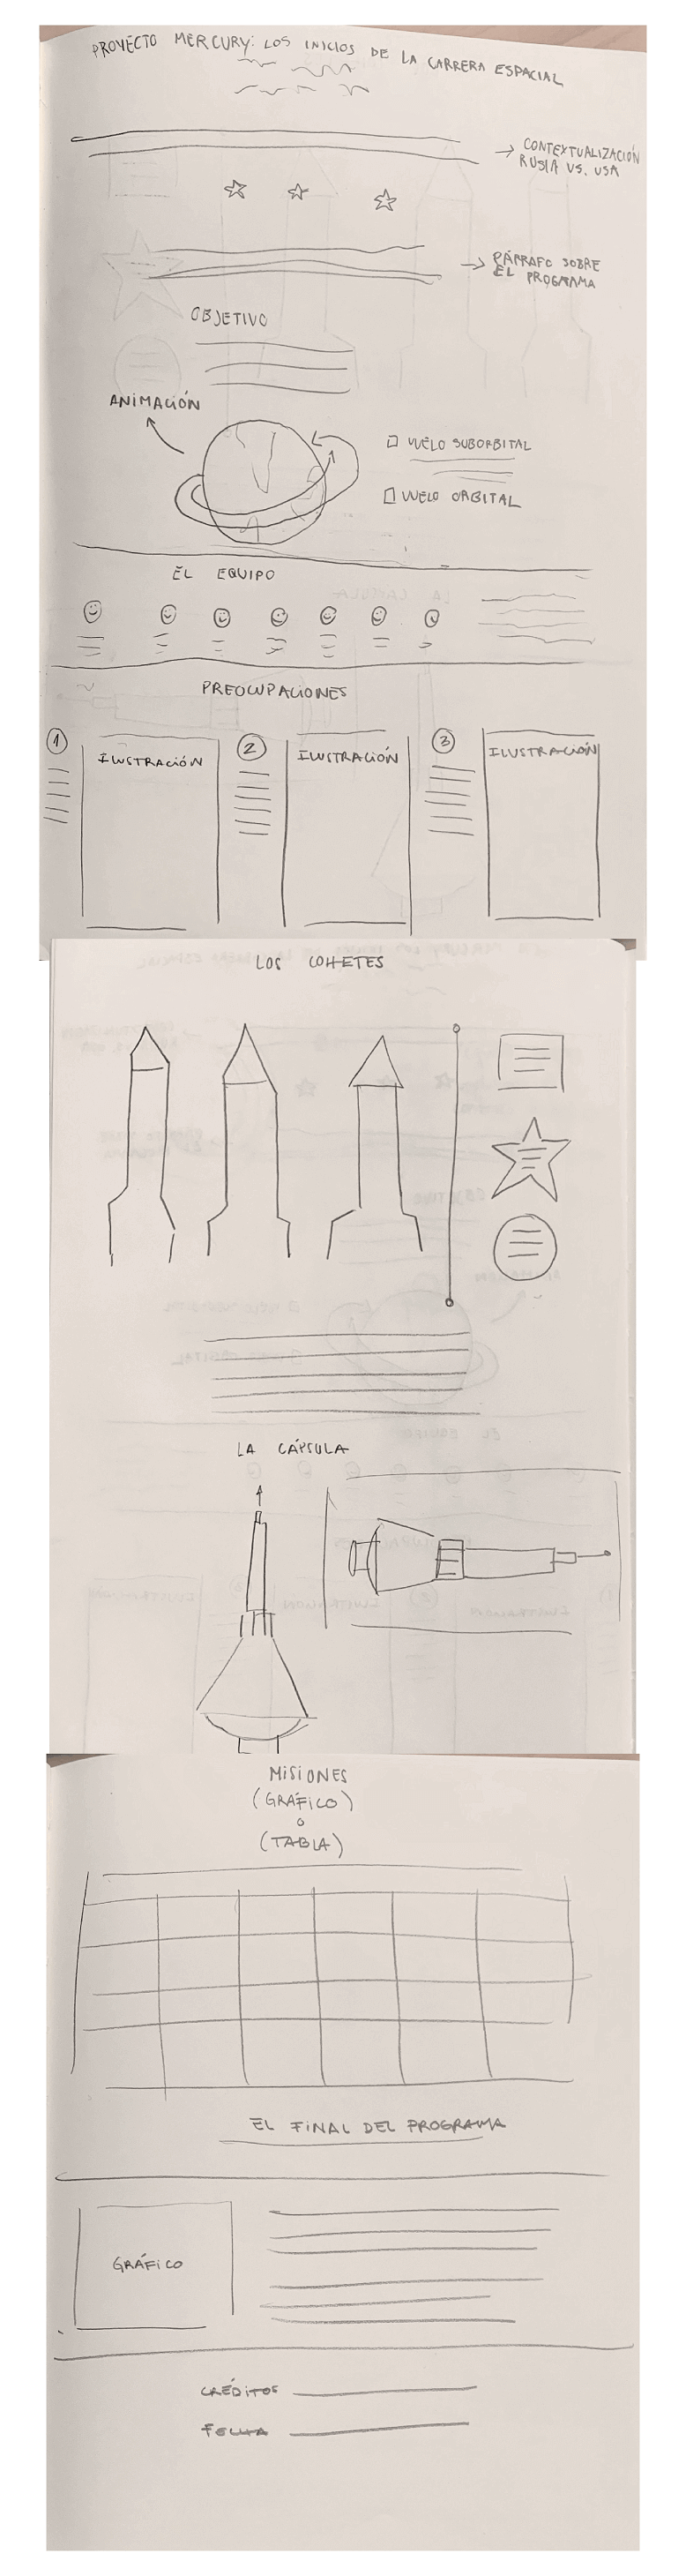 PROYECTO MERCURY: LOS INICIOS DE LA CARRERA ESPACIAL
→ CONTEXTUALIZACIÓN
RUSIA VS. USA
→ PÁRRAFO SOBRE
EL PROGRAMA
OBJETIVO
ANIMACIÓN
VUELO SUBORBITAL
VUELO ORBITAL
EL EQUIPO
PREOCUPACIONES
1
ILUSTRACIÓN
2
ILUSTRACIÓN
3
ILUSTRACIÓN
LOS COHETES
LA CÁPSULA
MISIONES
(GRÁFICO)
O
(TABLA)
EL FINAL DEL PROGRAMA
GRÁFICO
CRÉDITOS
FECHA